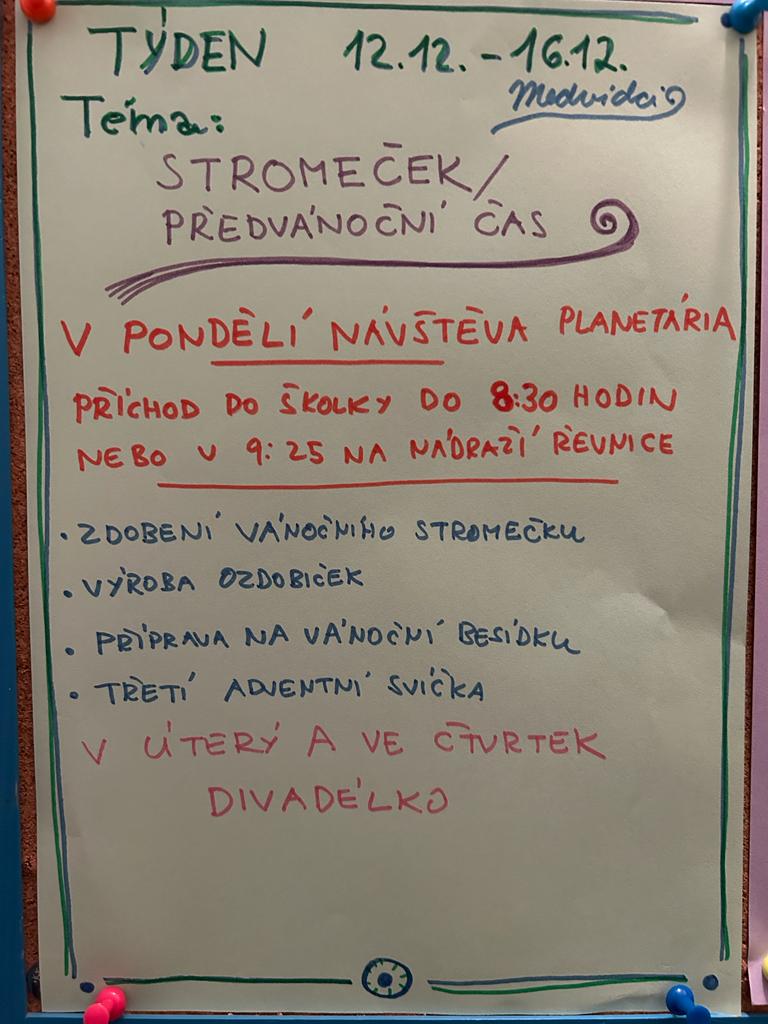 TÝDEN 12.12. - 16.12.
Medvídci
Téma:
STROMEČEK/
PŘEDVÁNOČNÍ ČAS
V PONDĚLÍ NÁVŠTĚVA PLANETÁRIA
PŘÍCHOD DO ŠKOLKY DO 8:30 HODIN
NEBO V 9:25 NA NÁDRAŽÍ ŘEVNICE
• ZDOBENÍ VÁNOČNÍHO STROMEČKU
• VÝROBA OZDOBIČEK
• PŘÍPRAVA NA VÁNOČNÍ BESÍDKU
• TŘETÍ ADVENTNÍ SVÍČKA
V ÚTERÝ A VE ČTVRTEK
DIVADÉLKO